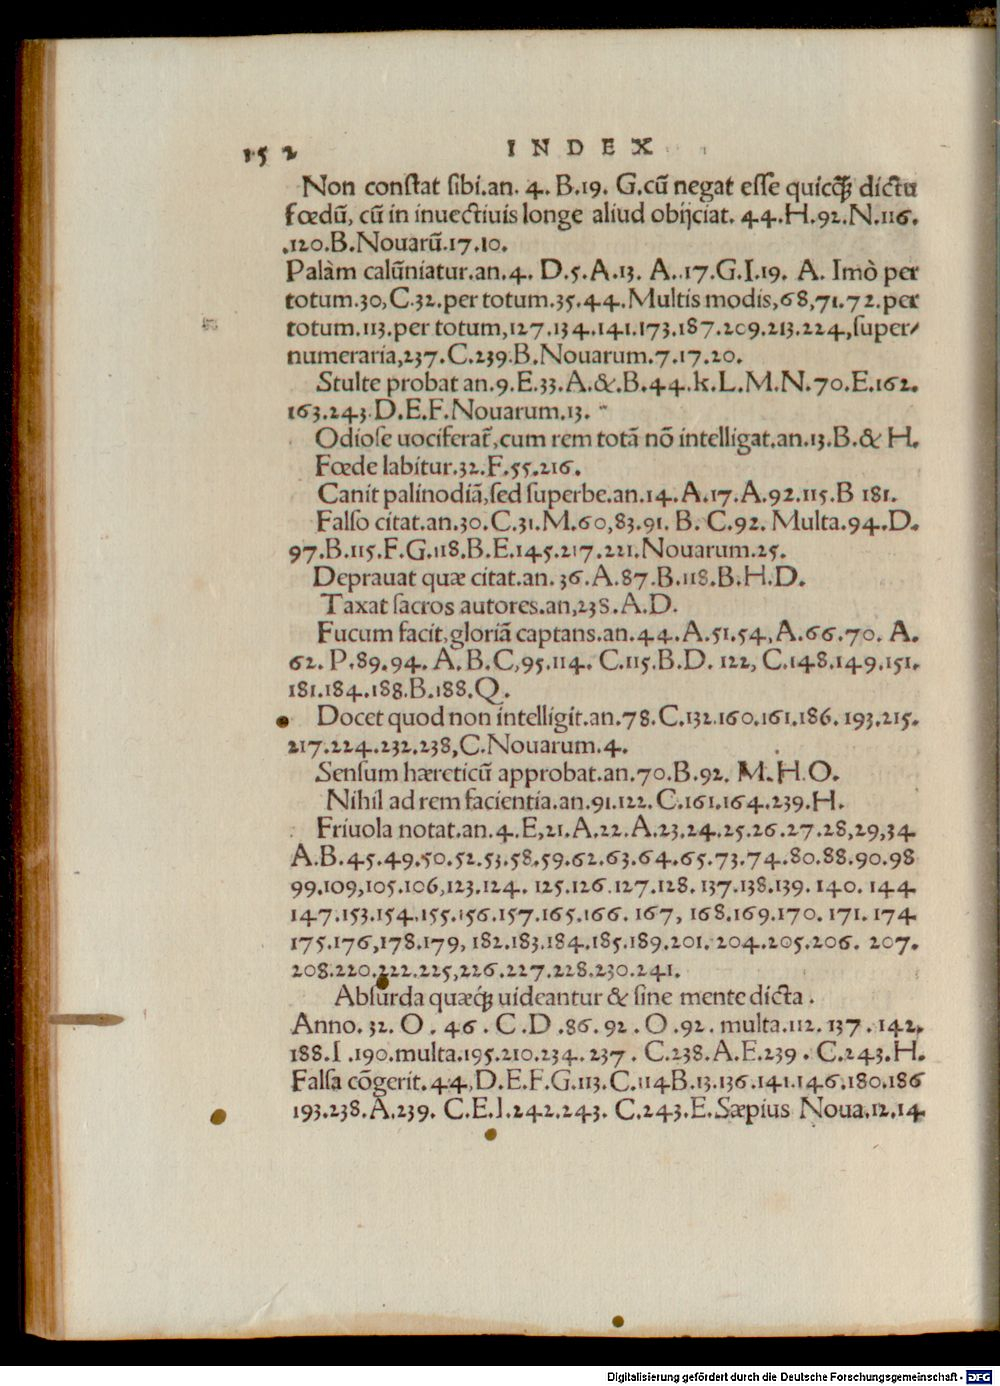 152 INDEX
Non conſtat ſibi.an. 4. B.19. G.cū negat eſſe quicq̃ȝ dictu
fœdū, cū in inuectiuis longe aliud obijciat. 44.H.92.N.116.
.120.B.Nouarū.17.10.
Palàm calūniatur.an.4. D.5.A.13. A..17.G.I.19. A. Imò per
totum.30,C.32.per totum.35.44.Multis modis,68,71.72.per
totum.113.per totum,127.134.141.173.187.209.213.224,ſuper/
numeraria,237.C.239.B.Nouarum.7.17.20.
Stulte probat an.9.E.33.A.&.B.44.k.L.M.N.70.E.162.
163.243.D.E.F.Nouarum.13.
Odioſe uociferat̃,cum rem totā nō intelligat.an.13.B.& H.
Fœde labitur.32.F.55.216.
Canit palinodiā,ſed ſuperbe.an.14.A.17.A.92.115.B 181.
Falſo citat.an.30.C.31.M.60,83.91. B. C.92. Multa.94.D.
97.B.115.F.G.118.B.E.145.217.221.Nouarum.25.
Deprauat quæ citat.an. 36.A.87.B.118.B.H.D.
Taxat ſacros autores.an,238.A.D.
Fucum facit,gloriā captans.an.44.A.51.54,A.66.70. A.
62. P.89.94. A. B.C,95.114. C.115.B.D. 122, C.148.149.151.
181.184.188.B.188.Q.
Docet quod non intelligit.an.78.C.132.160.161.186. 193.215.
217.224.232.238,C.Nouarum.4.
Senſum hæreticū approbat.an.70.B.92. M.H.O.
Nihil ad rem facientia.an.91.122.C.161.164.239.H.
Friuola notat.an.4.E,21.A.22.A.23.24.25.26.27.28,29,34
A.B.45.49.50.52.53.58.59.62.63.64.65.73.74.80.88.90.98
99.109,105.106,123.124. 125.126.127.128. 137.138.139. 140. 144
147.153.154.155.156.157.165.166. 167, 168.169.170. 171. 174
175.176,178.179, 182.183.184.185.189.201. 204.205.206. 207.
208.220.222.225,226.227.228.230.241.
Abſurda quæq́ȝ uideantur & ſine mente dicta .
Anno. 32. O . 46 . C .D .86. 92 . O .92. multa.112. 137 . 142.
188.I .190.multa.195.210.234. 237 . C.238.A.E.239 . C.243.H.
Falſa cōgerit.44,D.E.F.G.113.C.114B.13.136.141.146.180.186
193.238.A.239. C.E.I.242.243. C.243.E.Sæpius Noua.12.14
Digitalisierung gefördert durch die Deutsche Forschungsgemeinschaft - DFG